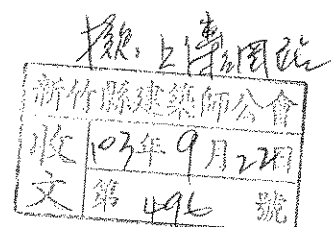 擬：上傳網站
新竹縣建築師公會
收文
103年9月22日
第 496 號